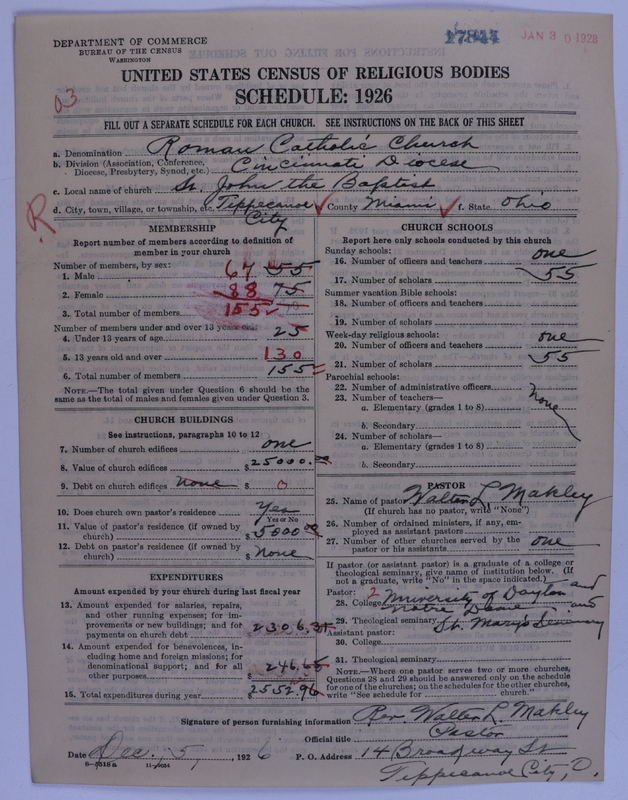 17844
JAN 30 1928
DEPARTMENT OF COMMERCE
BUREAU OF THE CENSUS
WASHINGTON
UNITED STATES CENSUS OF RELIGIOUS BODIES
SCHEDULE: 1926
03
FILL OUT A SEPARATE SCHEDULE FOR EACH CHURCH. SEE INSTRUCTIONS ON THE BACK OF THIS SHEET
a. Denomination Roman Catholic Church
b. Division (Association, Conference, Diocese, Presbytery, Synod, etc.) Cincinnati Diocese
c. Local name of church St. John the Baptist
R
d. City, town, village, or township, etc. Tippecanoe City County Miami f. State Ohio
MEMBERSHIP
Report number of members according to definition of
member in your church
Number of members, by sex:
1. Male 67 55
2. Female 88 75
3. Total number of members 155
Number of members under and over 13 years old:
4. Under 13 years of age 25
5. 13 years old and over 130
6. Total number of members 155
NOTE.—The total given under Question 6 should be
same as the total of males and females given under Question 3.
CHURCH BUILDINGS
See instructions, paragraphs 10 to 12
7. Number of church edifices one
8. Value of church edifices $25000.00
9. Debt on church edifices None $ 0
10. Does church own pastor's residence? Yes
Yes or No
11. Value of pastor's residence (if owned by
church) $5000.00
12. Debt on pastor's residence (if owned by
church) $None
EXPENDITURES
Amount expended by your church during last fiscal year
13. Amount expended for salaries, repairs,
and other running expenses; for im-
provements or new buildings; and for
payments on church debt 2306.31
14. Amount expended for benevolences, in-
cluding home and foreign missions; for
denominational support; and for all
other purposes $246.65
15. Total expenditures during year $2552.96
CHURCH SCHOOLS
Report here only schools conducted by this church
Sunday schools:
16. Number of officers and teachers one
17. Number of scholars 55
Summer vacation Bible schools:
18. Number of officers and teachers
19. Number of scholars
Week-day religious schools:
20. Number of officers and teachers one
21. Number of scholars 55
Parochial schools:
22. Number of administrative officers None
23. Number of teachers—
a. Elementary (grades 1 to 8)
b. Secondary
24. Number of scholars—
a. Elementary (grades 1 to 8)
b. Secondary
PASTOR
25. Name of pastor Walter L Makley
(If church has no pastor, write "None")
26. Number of ordained ministers, if any, em-
ployed as assistant pastors
27. Number of other churches served by the
pastor or his assistants one
If pastor (or assistant pastor) is a graduate of a college or
theological seminary, give name of institution below. (If
not a graduate, write "No" in the space indicated.)
Pastor: 2
28. College University of Dayton and Notre Dame and
29. Theological seminary St. Mary's Seminary
Assistant pastor:
30. College
31. Theological seminary
NOTE.—Where one pastor serves two or more churches,
Questions 28 and 29 should be answered only on the schedule
for one of the churches; on the schedules for the other churches,
write "See schedule for church."
Signature of person furnishing information Rev. Walter L. Makley
Official title Pastor
Date Dec. 5, 1926 P. O. Address 14 Broadway St
Tippecanoe City, O.